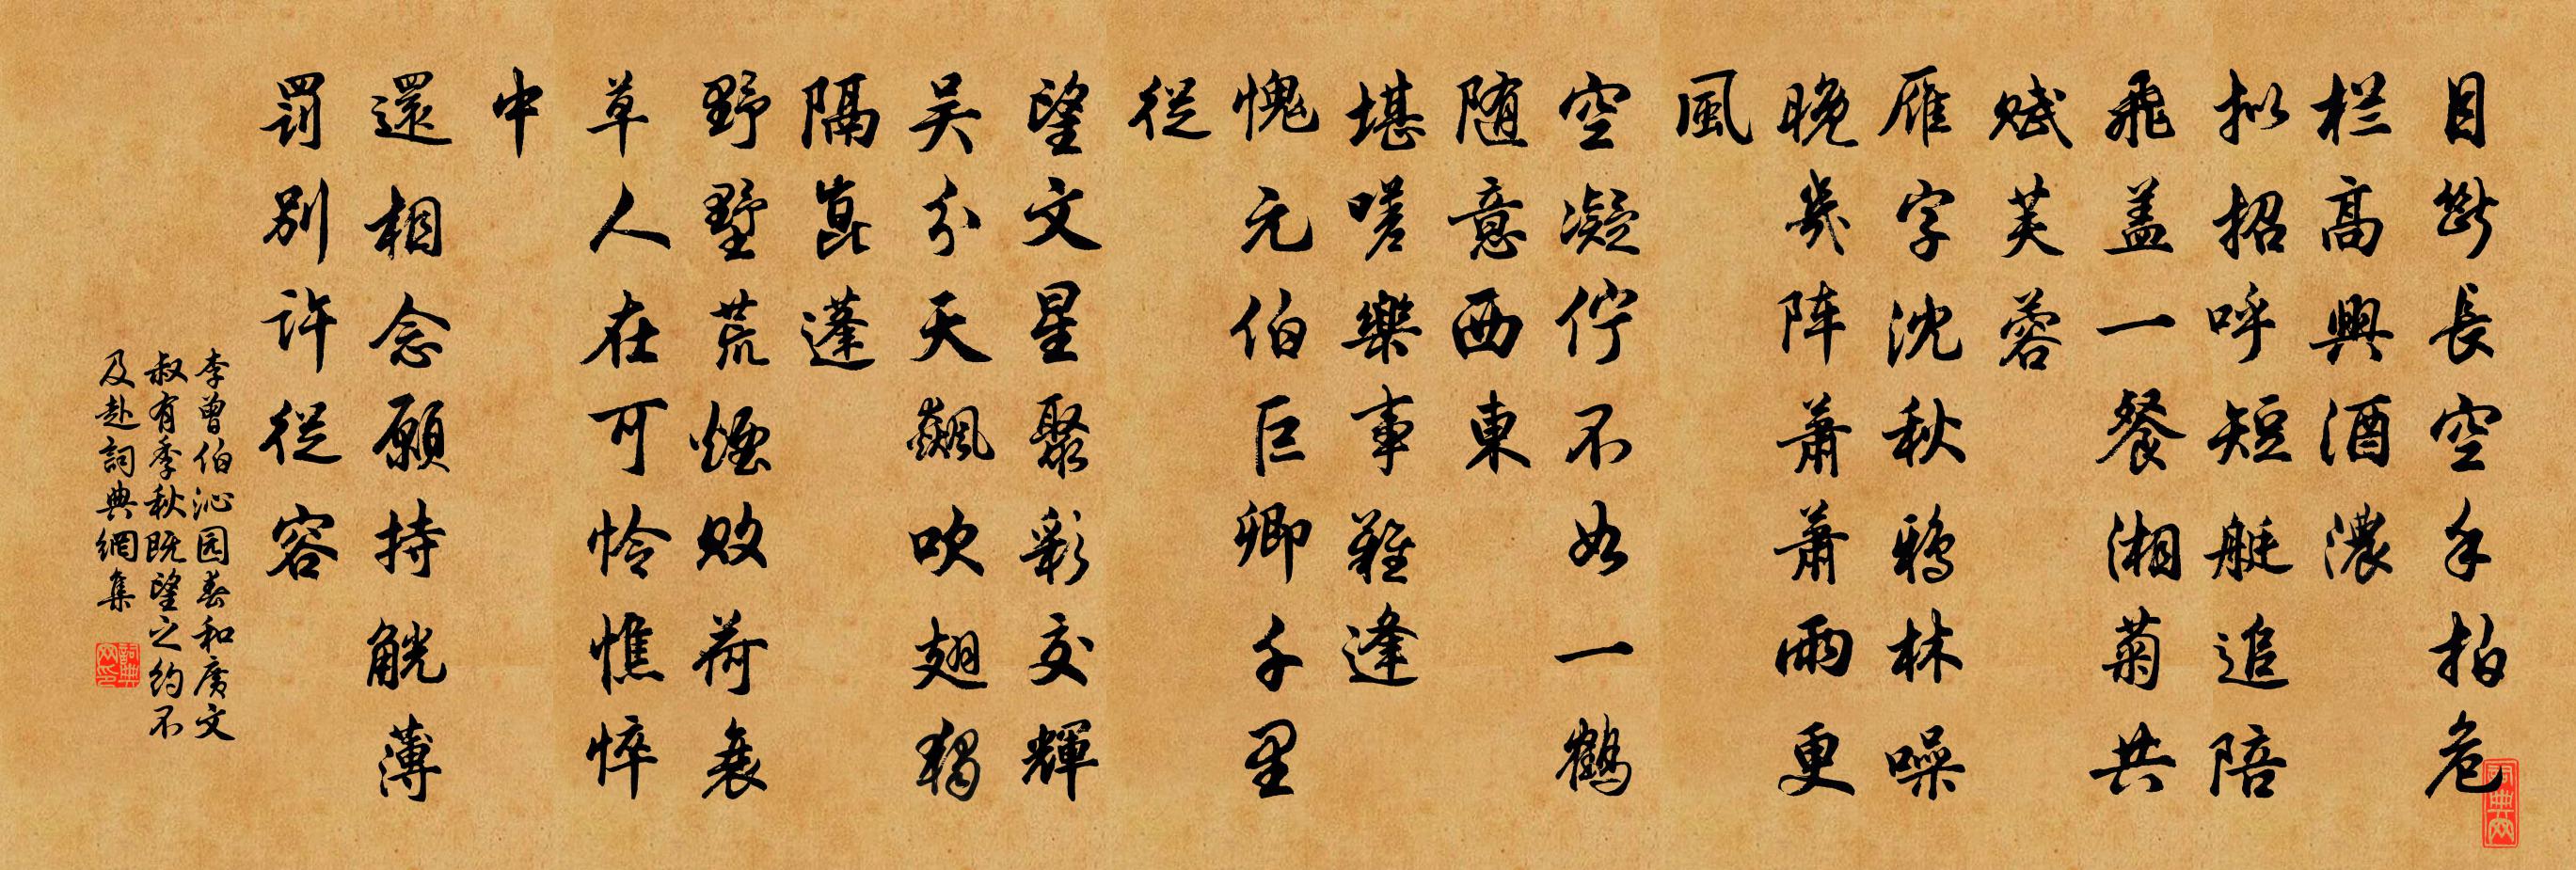 目斷長空手拍危
栏高興酒濃
拟招呼短艇追陪
飛盖一餐湘菊共
赋芙蓉
雁字沈秋鸦林噪
晚幾阵萧萧雨更
風
空凝佇不如一鶴
随意西東
堪嗟樂事難逢
愧元伯巨卿千里
從
望文星聚彩交輝
吴分天飆吹翅獨
隔崑蓬
野墅荒煙败荷衰
草人在可怜憔悴
中
還相念願持觥薄
罰别许從容
李曾伯沁园春和廣文
叔有季秋既望之约不
及赴詞典網集
詞典网印
詞典网